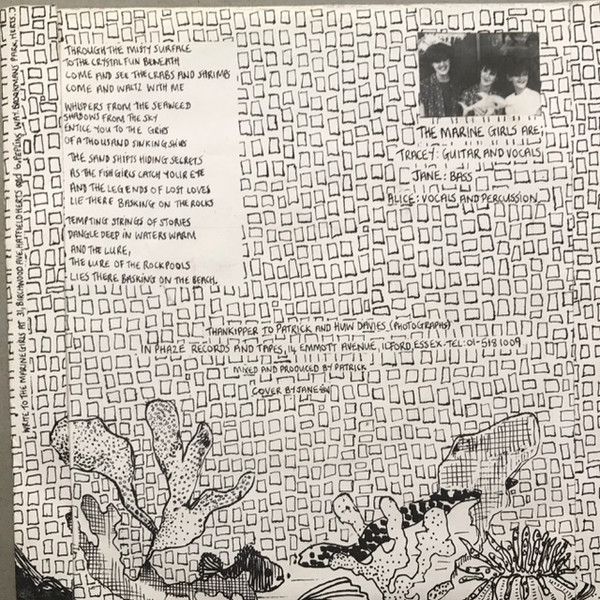 THROUGH THE MISTY SURFACE
TO THE CRYSTAL FUN BENEATH
COME AND SEE THE CRABS AND SHRIMPS
COME AND WALTZ WITH ME
WHISPERS FROM THE SEAWEED
SHADOWS FROM THE SKY
ENTICE YOU TO THE GRIBS
OF A THOUSAND SINKING SHIPS
THE SAND SHIFTS HIDING SECRETS
AS THE FISH GIRLS CATCH YOUR EYE
AND THE LEGENDS OF LOST LOVES
LIE THERE BASKING ON THE ROCKS
TEMPTING STRINGS OF STORIES
DANGLE DEEP IN WATERS WARM
AND THE LURE,
THE LURE OF THE ROCKPOOLS
LIES THERE BASKING ON THE BEACH.
THE MARINE GIRLS ARE;
TRACEY: GUITAR AND VOCALS
JANE: BASS
ALICE: VOCALS AND PERCUSSION
THANKIPPER TO PATRICK AND HUW DAVIES, (PHOTOGRAPHS)
IN PHAZE RECORDS AND TAPES, 14 EMMOTT AVENUE, ILFORD, ESSEX. TEL: 01-518 1009
MIXED AND PRODUCED BY PATRICK
COVER BY JANE
WRITE TO THE MARINE GIRLS AT 31, BIRCHWOOD AVE, HATFIELD HERTS PARK, HERTS.